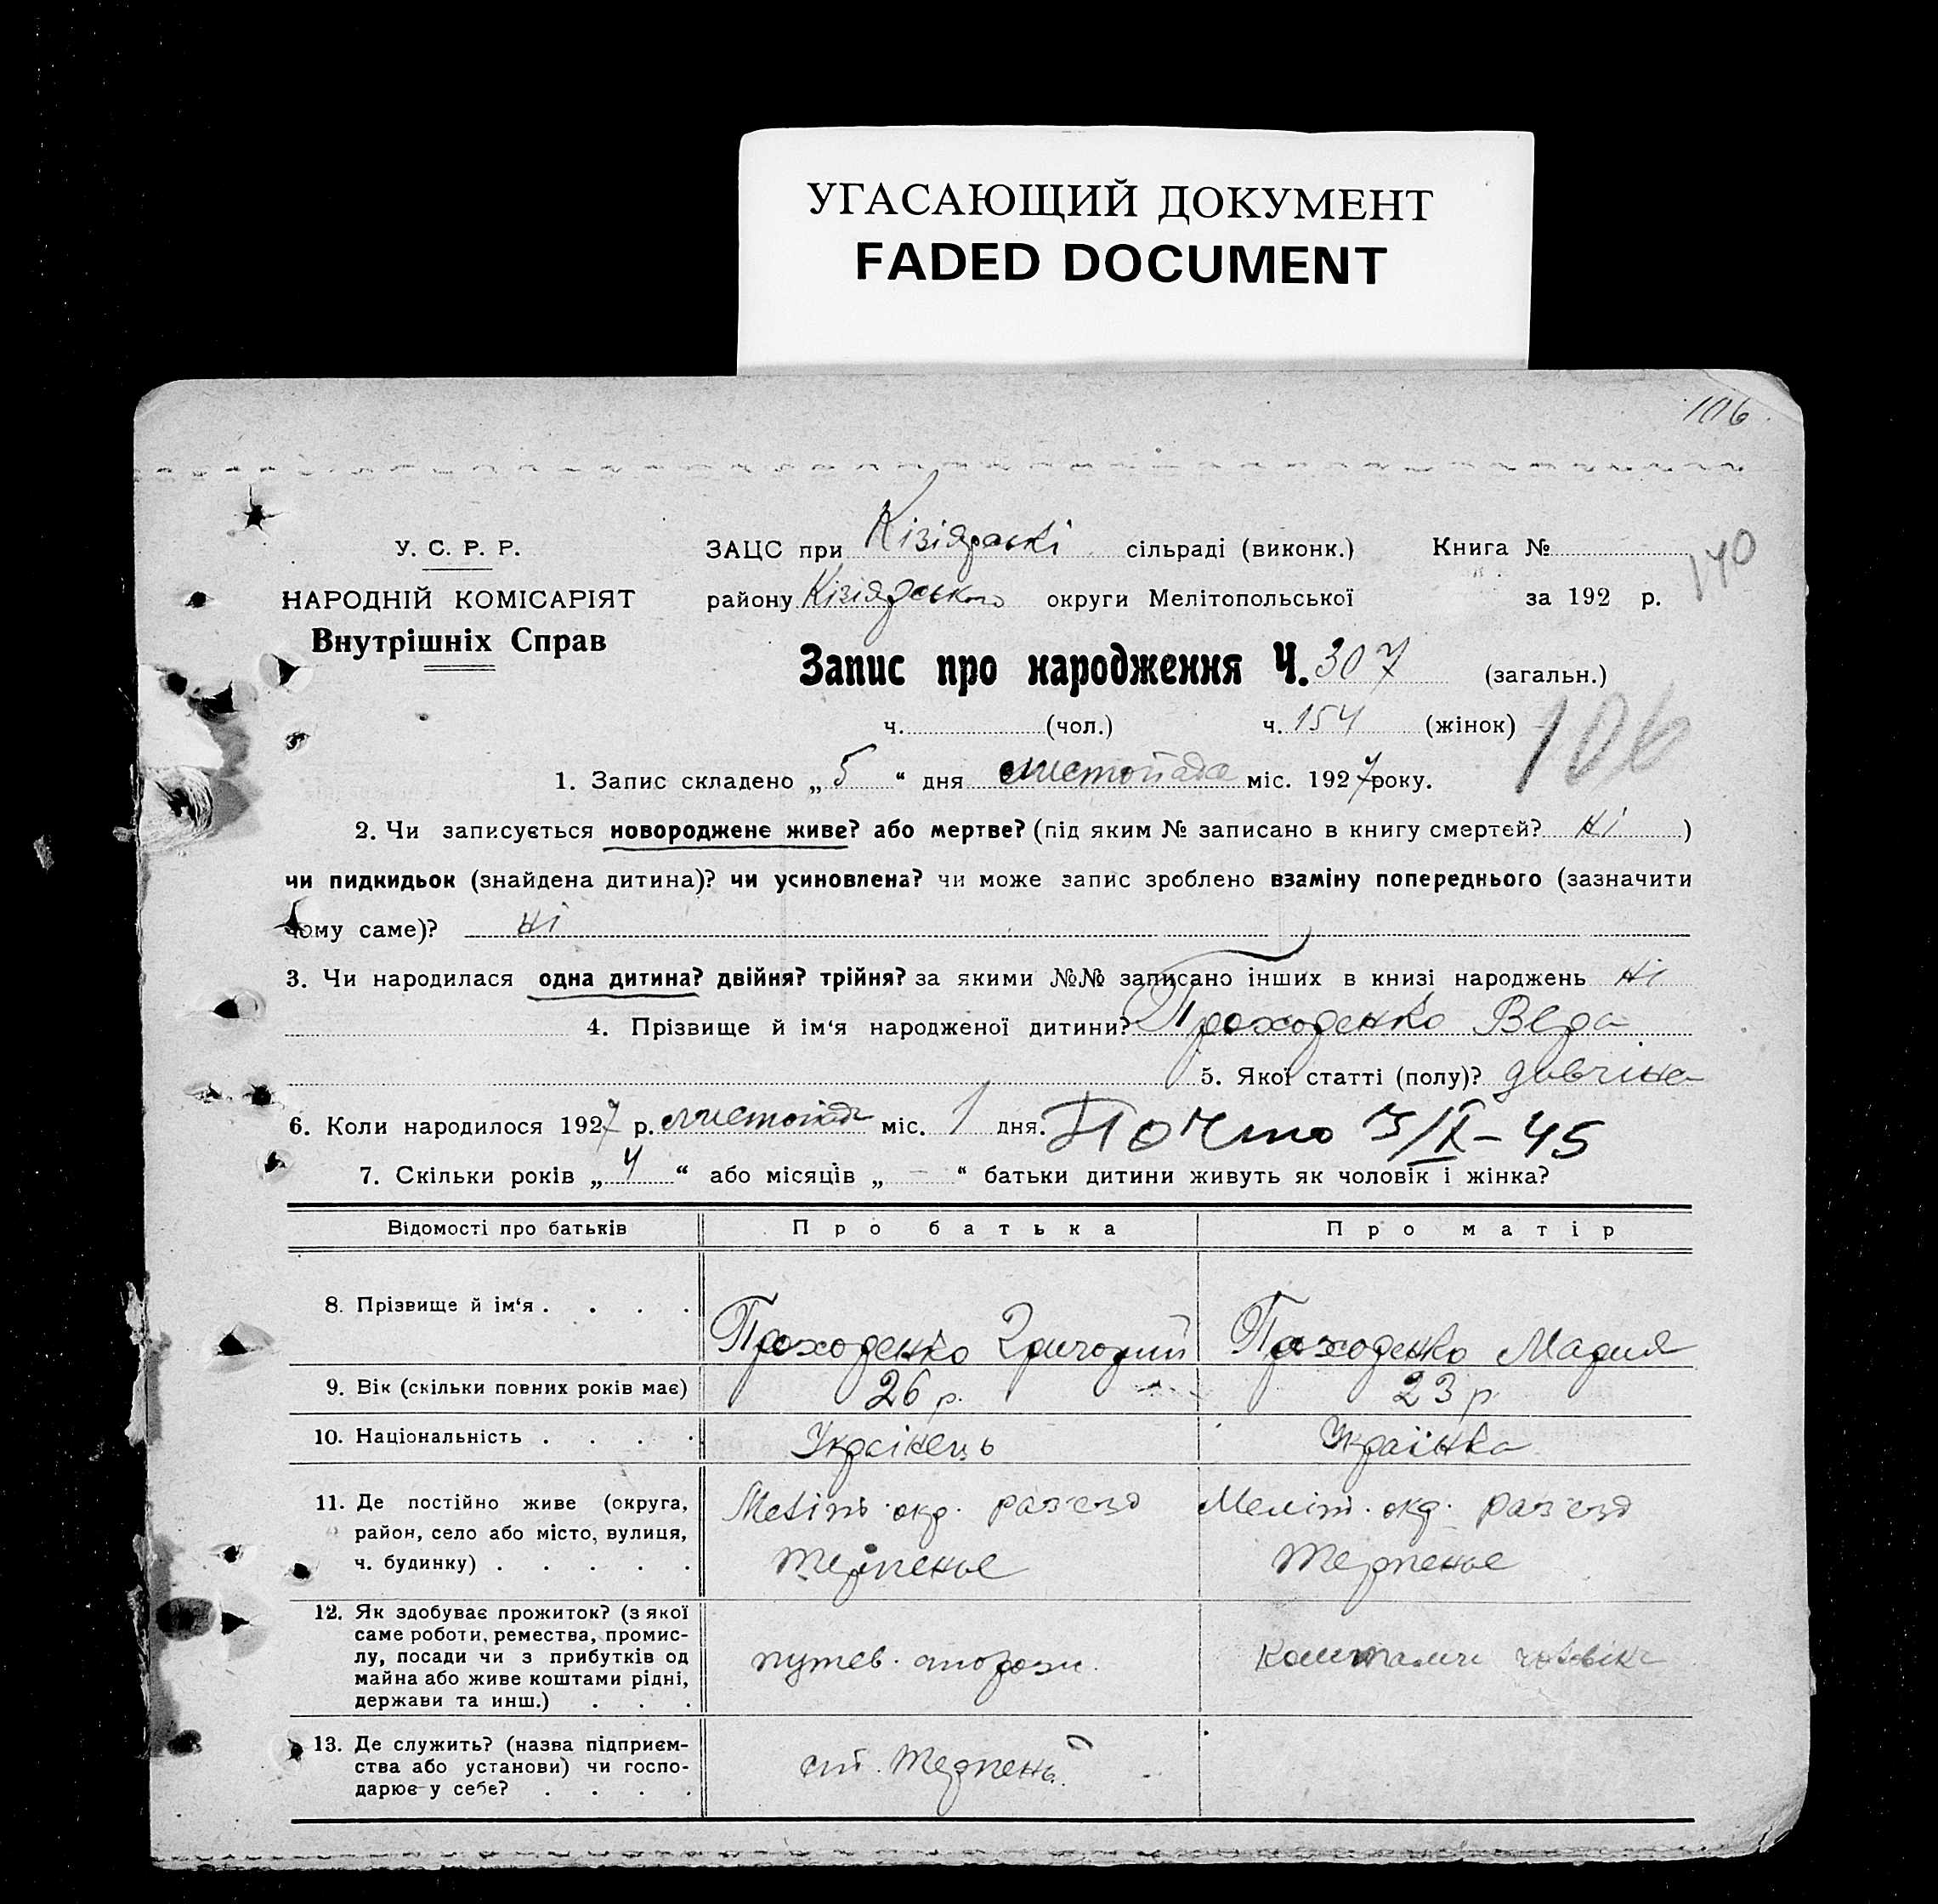 УГАСАЮЩИЙ ДОКУМЕНТ
FADED DOCUMENT
106
У. С. Р. Р.
НАРОДНІЙ КОМІСАРІЯТ
Внутрішніх Справ
ЗАЦС при Кізіярські сільраді (виконк.) Книга №
140
району Кізіярського округи Мелітопольської за 192 р.
Запис про народження Ч. 307 (загальн.)
ч. (чол.) ч. 154 (жінок)
106
1. Запис складено „ 5 “ дня листопада міс. 1927 року.
2. Чи записується новороджене живе? або мертве? (під яким № записано в книгу смертей? ні )
чи пидкидьок (знайдена дитина)? чи усиновлена? чи може запис зроблено взаміну попереднього (зазначити
чому саме)? ні
3. Чи народилася одна дитина? двійня? трійня? за якими №№ записано інших в книзі народжень ні
4. Прізвище й ім‘я народженої дитини? Проходенко Вера
5. Якої статті (полу)? дівчина
6. Коли народилося 1927 р. листопад міс. 1 дня.
7. Скільки років „ 4 “ або місяців „ — “ батьки дитини живуть як чоловік і жінка?
Відомості про батьків Про батька Про матір
8. Прізвище й ім‘я . . . . Проходенко Григорий Проходенко Мария
9. Вік (скільки повних років має) 26 р. 23 р
10. Національність . . . . Українець Українка
11. Де постійно живе (округа,
район, село або місто, вулиця,
ч. будинку) . . . . .
Меліт. окр. раз'езд
Терпенье
Меліт. окр. раз'езд
Терпенье
12. Як здобуває прожиток? (з якої
саме роботи, ремества, промис-
лу, посади чи з прибутків од
майна або живе коштами рідні,
держави та инш.) . . .
путев. сторож.
коштами чоловіка
13. Де служить? (назва підприєм-
ства або установи) чи госпо-
дарює у себе? . . . .
ст. Терпень